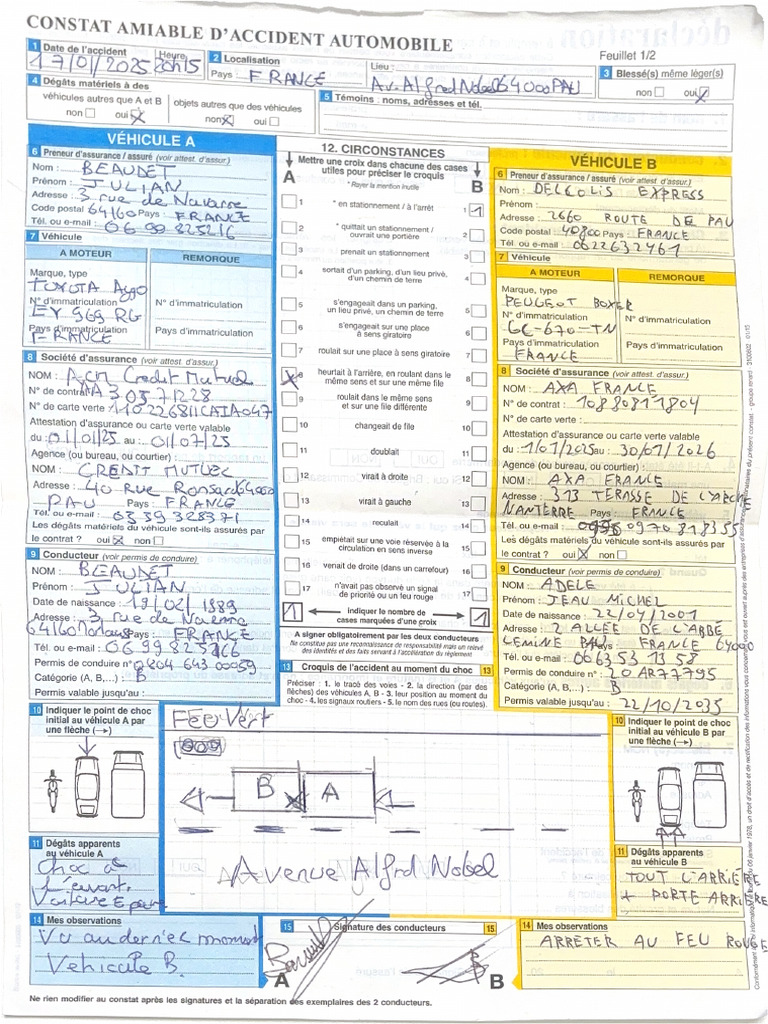 CONSTAT AMIABLE D'ACCIDENT AUTOMOBILE
Feuillet 1/2
1 Date de l'accident Heure
17/01/2025 20h15
2 Localisation
Pays : FRANCE
Lieu :
Av. Alfred Nobel 64000 PAU
3 Blessé(s) même léger(s)
non oui X
4 Dégâts matériels à des
véhicules autres que A et B
non oui X
objets autres que des véhicules
non X oui
5 Témoins : noms, adresses et tél.
VÉHICULE A
6 Preneur d'assurance / assuré (voir attest. d'assur.)
Nom : BEAUDET
Prénom : JULIAN
Adresse : 3 rue de Navarre
Code postal 64160 Pays : FRANCE
Tél. ou e-mail : 06 99 825216
7 Véhicule
A MOTEUR
REMORQUE
Marque, type
TOYOTA Aygo
N° d'immatriculation
EY 969 RG
Pays d'immatriculation
FRANCE
N° d'immatriculation
Pays d'immatriculation
8 Société d'assurance (voir attest. d'assur.)
NOM : ACM Credit Mutuel
N° de contrat AA 30571228
N° de carte verte
Attestation d'assurance ou carte verte valable
du : 01/01/25 au : 01/07/25
Agence (ou bureau, ou courtier) :
NOM : CREDIT MUTUEL
Adresse : 40 Rue Ronsard 64000
PAU Pays : FRANCE
Tél. ou e-mail : 0559328371
Les dégâts matériels du véhicule sont-ils assurés par
le contrat ? oui X non
9 Conducteur (voir permis de conduire)
NOM : BEAUDET
Prénom : JULIAN
Date de naissance : 19/02/1989
Adresse : 3 rue de Navarre
64160 Morlaas Pays : FRANCE
Tél. ou e-mail : 06 99 825266
Permis de conduire n° 0804 643 00059
Catégorie (A, B,...) : B
Permis valable jusqu'au :
12. CIRCONSTANCES
A
Mettre une croix dans chacune des cases
utiles pour préciser le croquis
B
* Rayer la mention inutile
1 * en stationnement / à l'arrêt 1
2 * quittait un stationnement / ouvrait une portière 2
3 prenait un stationnement 3
4 sortait d'un parking, d'un lieu privé, d'un chemin de terre 4
5 s'engageait dans un parking, un lieu privé, un chemin de terre 5
6 s'engageait sur une place à sens giratoire 6
7 roulait sur une place à sens giratoire 7
X 8 heurtait à l'arrière, en roulant dans le même sens et sur une même file 8
9 roulait dans le même sens et sur une file différente 9
10 changeait de file 10
11 doublait 11
12 virait à droite 12
13 virait à gauche 13
14 reculait 14
15 empiétait sur une voie réservée à la circulation en sens inverse 15
16 venait de droite (dans un carrefour) 16
17 n'avait pas observé un signal de priorité ou un feu rouge 17
1 indiquer le nombre de cases marquées d'une croix 1
A signer obligatoirement par les deux conducteurs
Ne constitue pas une reconnaissance de responsabilité mais un relevé
des identités et des faits servant à l'accélération du règlement
VÉHICULE B
6 Preneur d'assurance / assuré (voir attest. d'assur.)
Nom : DELCOLIS EXPRESS
Prénom :
Adresse : 2660 ROUTE DE PAU
Code postal 40800 Pays : FRANCE
Tél. ou e-mail : 0622632461
7 Véhicule
A MOTEUR
REMORQUE
Marque, type
PEUGEOT BOXER
N° d'immatriculation
GC-670-TN
Pays d'immatriculation
FRANCE
N° d'immatriculation
Pays d'immatriculation
8 Société d'assurance (voir attest. d'assur.)
NOM : AXA FRANCE
N° de contrat : 10880811804
N° de carte verte :
Attestation d'assurance ou carte verte valable
du : 1/01/2025 au : 30/01/2026
Agence (ou bureau, ou courtier) :
NOM : AXA FRANCE
Adresse : 313 TERASSE DE L'ARCHE
NANTERRE Pays : FRANCE
Tél. ou e-mail : 0970818355
Les dégâts matériels du véhicule sont-ils assurés par
le contrat ? oui X non
9 Conducteur (voir permis de conduire)
NOM : ADELE
Prénom : JEAU MICHEL
Date de naissance : 22/04/2001
Adresse : 2 ALLÉE DE L'ABBÉ
LEMINE PAU Pays : FRANCE 64000
Tél. ou e-mail : 06 63 53 13 58
Permis de conduire n° : 20AR77795
Catégorie (A, B,...) : B
Permis valable jusqu'au : 22/10/2035
13 Croquis de l'accident au moment du choc 13
Préciser : 1. le tracé des voies - 2. la direction (par des
flèches) des véhicules A, B - 3. leur position au moment du
choc - 4. les signaux routiers - 5. le nom des rues (ou routes).
10 Indiquer le point de choc
initial au véhicule A par
une flèche (→)
FEU Vert
B A
Avenue Alfred Nobel
10 Indiquer le point de choc
initial au véhicule B par
une flèche (→)
11 Dégâts apparents
au véhicule A
Choc à
l'avant.
Voiture Epave
11 Dégâts apparents
au véhicule B
TOUT L'ARRIÈRE
+ PORTE ARRIERE
14 Mes observations
Vu au dernier moment
Vehicule B.
15 Signature des conducteurs 15
A
B
14 Mes observations
ARRÊTER AU FEU ROUGE
Ne rien modifier au constat après les signatures et la séparation des exemplaires des 2 conducteurs.